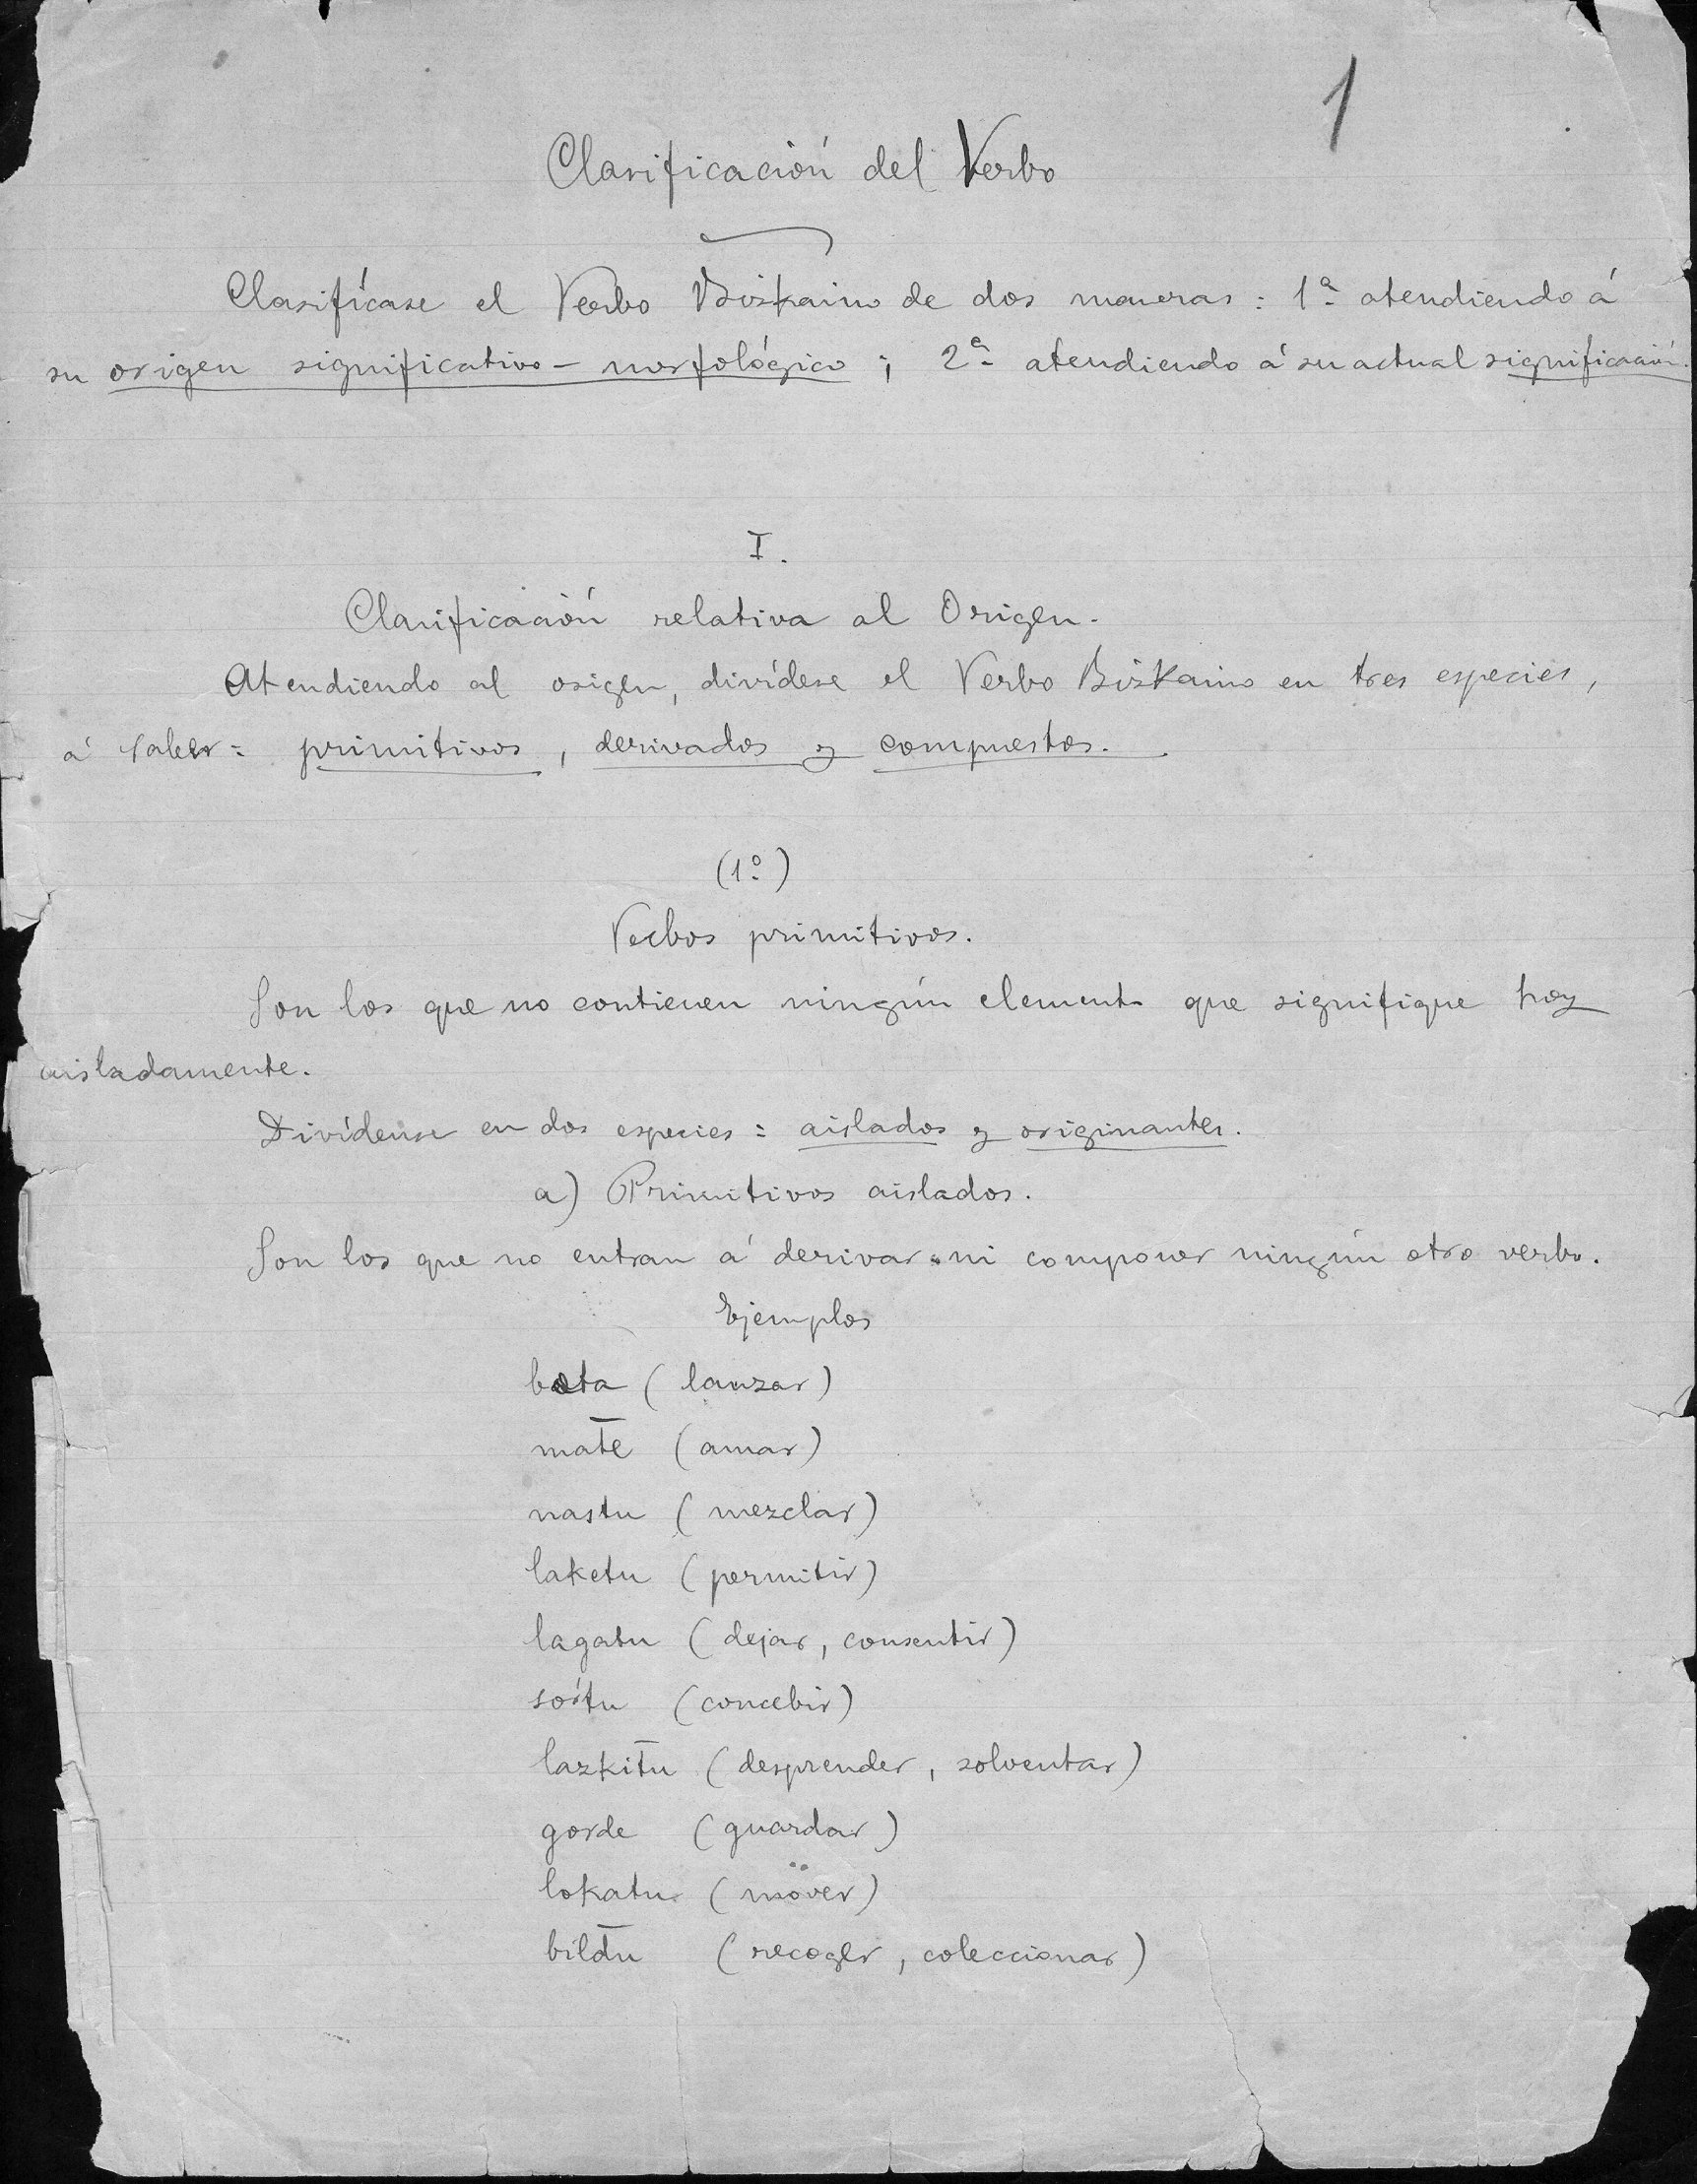 1
Clasificación del Verbo
Clasifícase el Verbo Bizkaino de dos maneras: 1ª atendiendo á
su origen significativo-morfológico; 2ª atendiendo á su actual significación.
I.
Clasificación relativa al Origen.
Atendiendo al origen, divídese el Verbo Bizkaino en tres especies,
á saber: primitivos, derivados y compuestos.
(1º)
Verbos primitivos.
Son los que no contienen ningún elemento que signifique hoy
aisladamente.
Divídense en dos especies: aislados y originantes.
a) Primitivos aislados.
Son los que no entran á derivar ni componer ningún otro verbo.
Ejemplos
bota (lanzar)
mat̄e (amar)
nastu (mezclar)
laketu (permitir)
lagatu (dejar, consentir)
soŕtu (concebir)
lazkit̄u (desprender, solventar)
gorde (guardar)
lokatu (mover)
bild̄u (recoger, coleccionar)